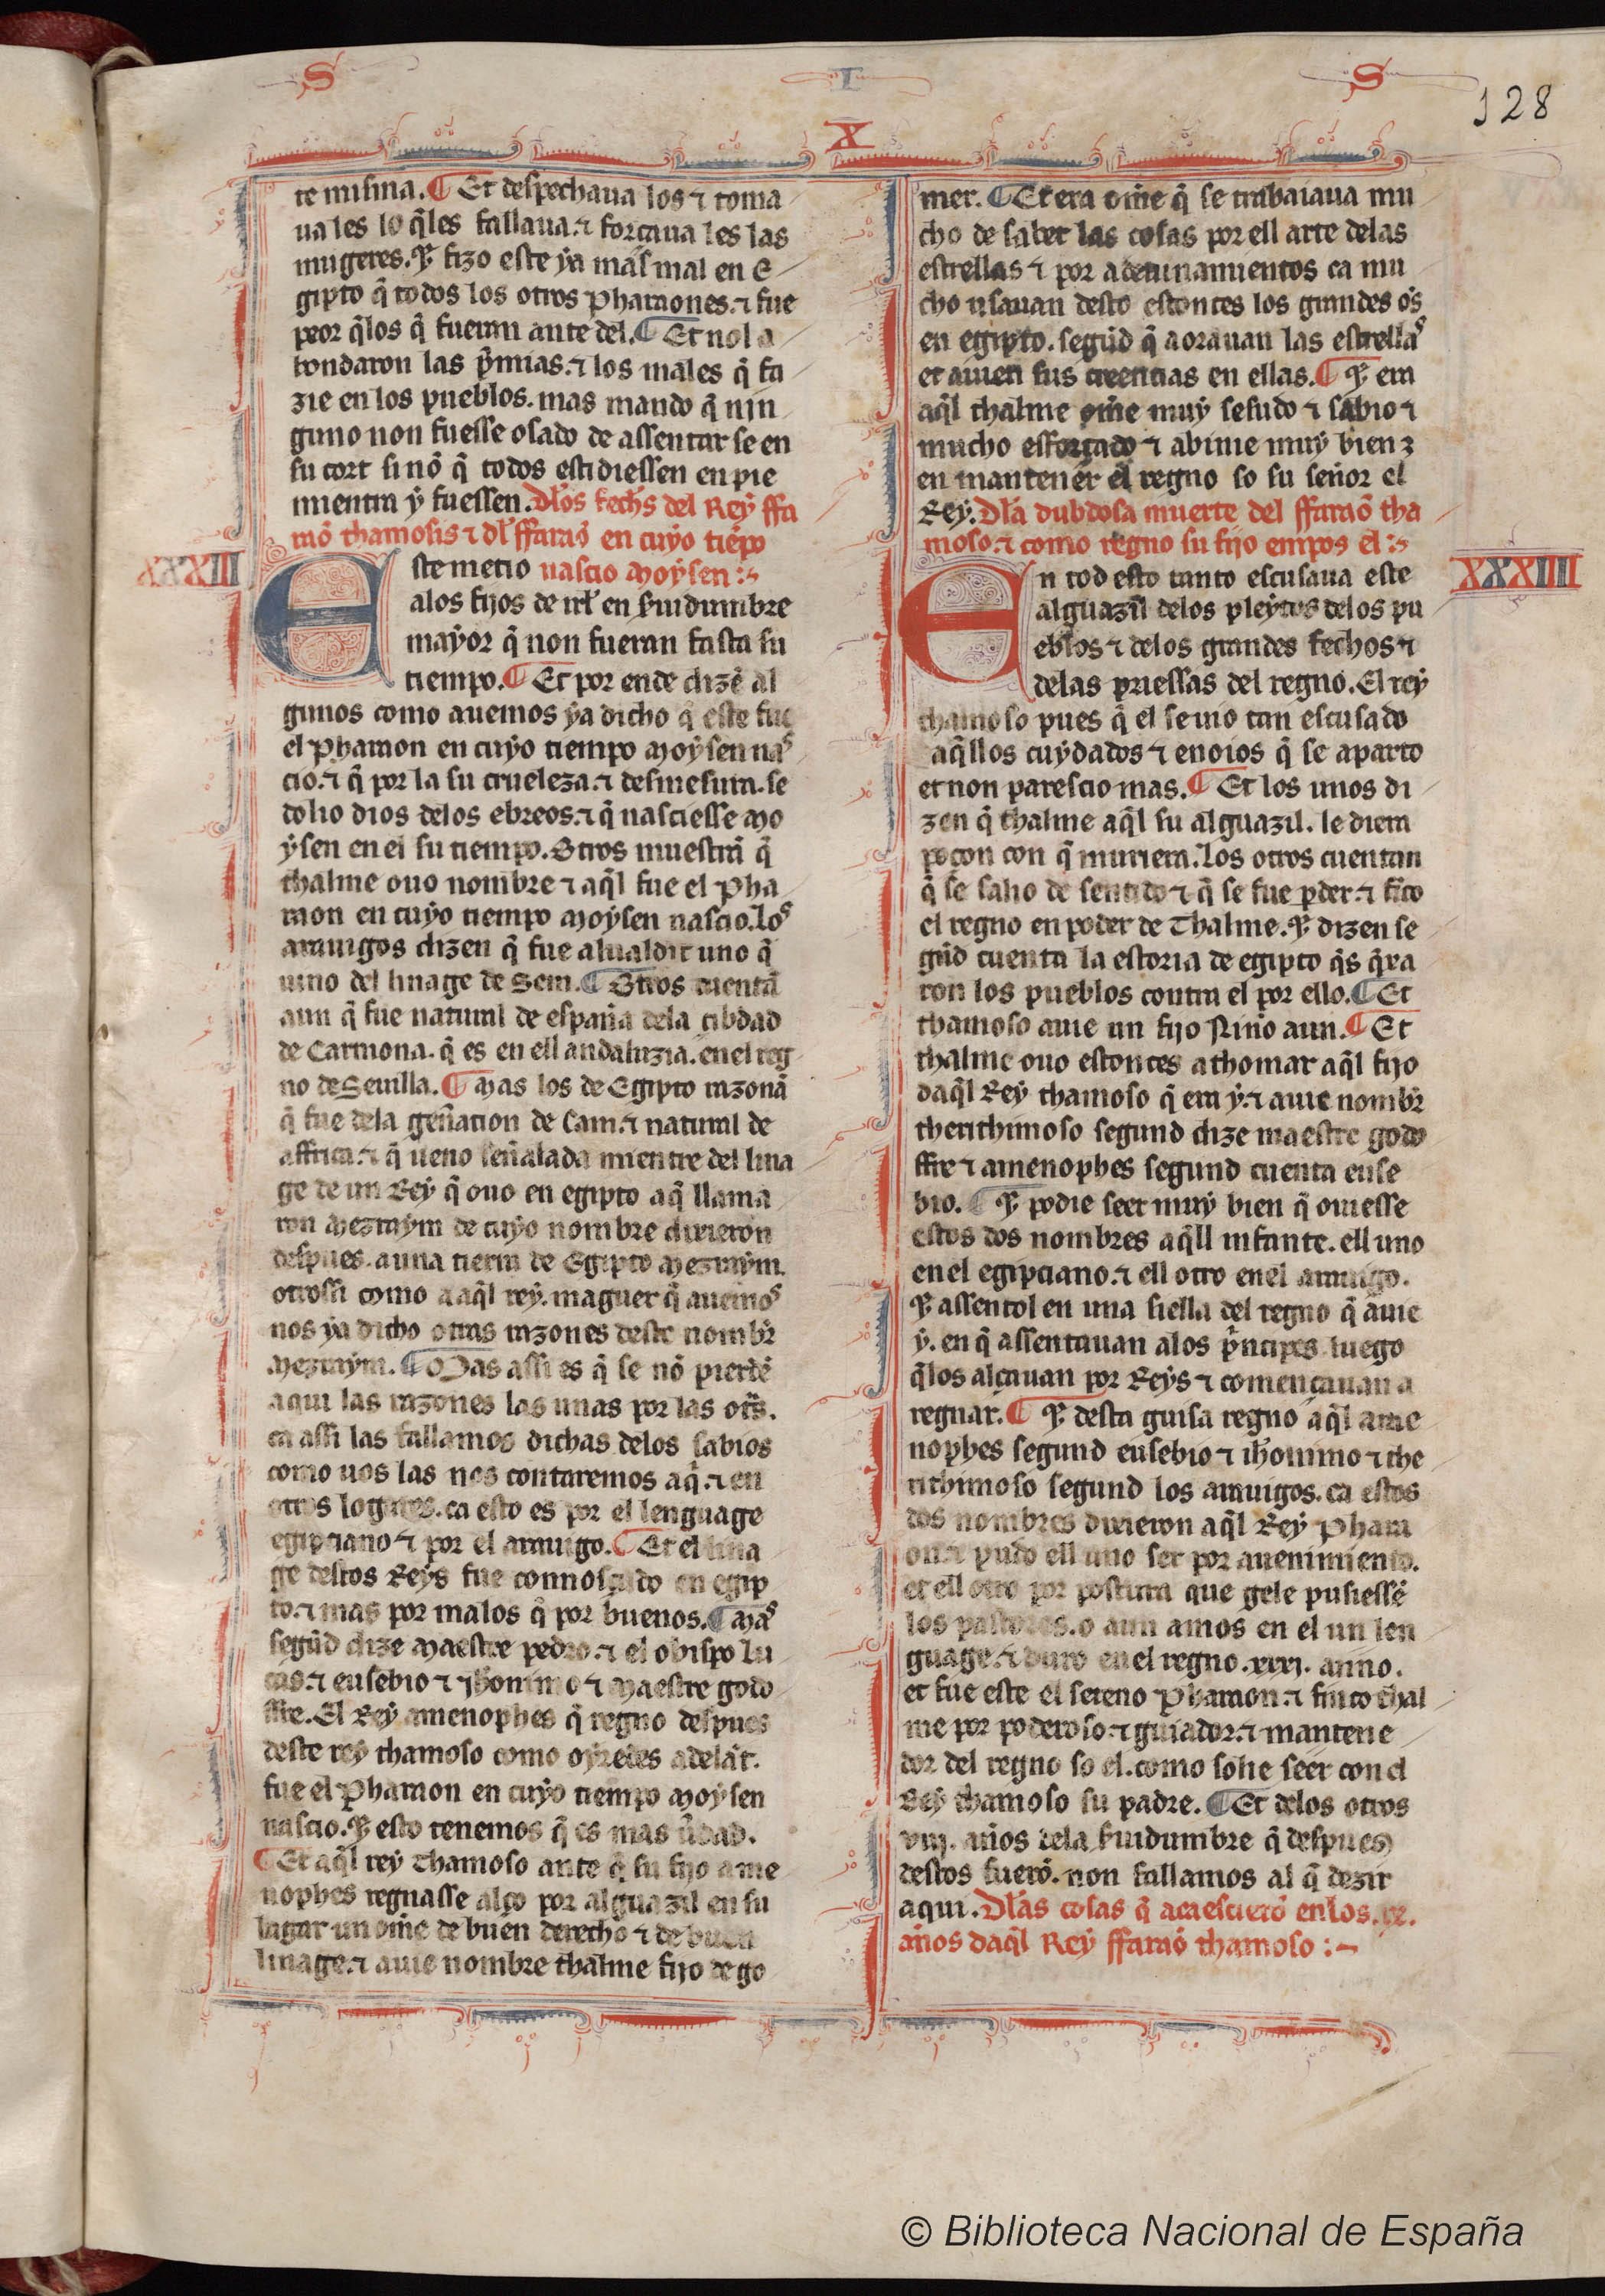 S L S
X
128
te misma. ¶ Et despechaua los ⁊ toma
ua les lo q̃les fallaua. ⁊ forçaua les las
mugeres. ⁊ fizo este ya mas mal en E
gipto q̃ todos los otros Pharaones. ⁊ fue
peor q̃los q̃ fueran ante del. ¶ Et nol a
bondaron las p̃mias. ⁊ los males q̃ fa
zie en los pueblos. mas mando q̃ nin
guno non fuesse osado de assentar se en
su cort si nõ q̃ todos estidiessen en pie
mientra y fuessen. Dl̃os fechs del Rey ffa
raõ thamosis ⁊ dl̃ ffaraõ en cuyo tiẽpo
XXXIII
Este metio nascio moysen :~
alos fijos de isrl̃ en suidumbre
mayor q̃ non fueran fasta su
tiempo. ¶ Et por ende dizẽ al
gunos como auemos ya dicho q̃ este fue
el Pharaon en cuyo tiempo moysen nas
cio. ⁊ q̃ por la su crueleza. ⁊ desmesura. se
dolio dios delos ebreos. ⁊ q̃ nasciesse mo
ysen en el su tiempo. Otros muestrã q̃
thalme ouo nombre ⁊ aq̃l fue el Pha
raon en cuyo tiempo moysen nascio. los
arauigos dizen q̃ fue alualdit uno q̃
uino del linage de Sem. ¶ Otros cuentã
aun q̃ fue natural de españa dela cibdad
de Carmona. q̃ es en ell andaluzia. en el reg
no de Seuilla. ¶ mas los de Egipto razonã
q̃ fue dela geñacion de Cam. ⁊ natural de
affrica. ⁊ q̃ ueno señalada mientre del lina
ge de un Rey q̃ ouo en egipto aq̃ llama
ron mezraym de cuyo nombre dixieron
despues. a una tierra de Egipto mezraym.
otrossi como a aq̃l rey. maguer q̃ auemos
nos ya dicho otras razones deste nombr̃
mezraym. ¶ Mas assi es q̃ se nõ pierdẽ
aqui las razones las unas por las otr̃s.
ca assi las fallamos dichas delos sabios
como uos las nos contaremos aq̃. ⁊ en
otros logares. ca esto es por el lenguage
egipciano ⁊ por el arauigo. ¶ Et el lina
ge destos Reys fue connosçudo en egip
to. ⁊ mas por malos q̃ por buenos. ¶ mas
segũd dize maestre pedro. ⁊ el obispo lu
cas. ⁊ eusebio ⁊ jhonimo ⁊ maestre godo
ffre. El Rey amenophes q̃ regno despues
deste rey thamoso como oyredes adelãt.
fue el Pharaon en cuyo tiempo moysen
nascio. ⁊ esto tenemos q̃ es mas ũdad.
¶ Et aq̃l rey Thamoso ante q̃ su fijo ame
nophes regnasse alço por alguazil en su
lagar un om̃e de buen derecho ⁊ de buen
linage. ⁊ auie nombre thalme fijo de go
mer. ¶ Et era om̃e q̃ se trabaiaua mu
cho de saber las cosas por ell arte delas
estrellas ⁊ por adeuinamientos ca mu
cho usauan desto estonces los grandes o͂s
en egipto. segũd q̃ aorauan las estrellas
et auien sus creencias en ellas. ¶ ⁊ era
aq̃l thalme om̃e muy sesudo ⁊ sabio ⁊
mucho esforçado ⁊ abinie muy bien ⁊
en mantener el regno so su señor el
Rey. Dl̃a dubdosa muerte del ffaraõ tha
moso. ⁊ como regno su fijo empos el :~
XXXIIII
En tod esto tanto escusaua este
alguazil delos pleytos delos pu
eblos ⁊ delos grandes fechos ⁊
delas priessas del regno. El rey
thamoso pues q̃ el se uio tan escusado
aq̃llos cuydados ⁊ enoios q̃ se aparto
et non parescio mas. ¶ Et los unos di
zen q̃ thalme aq̃l su alguazil. le diera
poçon con q̃ muriera. los otros cuentan
q̃ se salio de sentido ⁊ q̃ se fue p̱der. ⁊ fico
el regno en poder de Thalme. ⁊ dizen se
gũd cuenta la estoria de egipto q̃s q̃xa
ron los pueblos contra el por ello. ¶ Et
thamoso auie un fijo Nino aun. ¶ Et
thalme ouo estonces a thomar aq̃l fijo
daq̃l Rey thamoso q̃ era y. ⁊ auie nombr̃
therithimoso segund dize maestre godo
ffre ⁊ amenophes segund cuenta euse
bio. ¶ ⁊ podie seer muy bien q̃ ouiesse
estos dos nombres aq̃ll infante. ell uno
en el egipciano. ⁊ ell otro en el arauigo.
⁊ assentol en una siella del regno q̃ auie
y. en q̃ assentauan alos p̃ncipes luego
q̃los alçauan por Reys ⁊ començauan a
regnar. ¶ ⁊ desta guisa regno aq̃l ame
nophes segund eusebio ⁊ ih̃onimo ⁊ the
rithimoso segund los arauigos. ca estos
dos nombres dixieron aq̃l Rey Phara
on. ⁊ pudo ell uno ser por auenimiento.
et ell otro por postura que gele pusiessẽ
los pastores. o aun amos en el un len
guage. ⁊ duro en el regno .xxxj. anno.
et fue este el sereno Pharaon. ⁊ finco thal
me por poderoso. ⁊ guiador. ⁊ mantene
dor del regno so el. como solie seer con el
Rey thamoso su padre. ¶ Et delos otros
viij. años dela suidumbre q̃ despues
destos fuerõ. non fallamos al q̃ dezir
aqui. Dl̃as cosas q̃ acaescierõ enlos .xx.
años daq̃l Rey ffaraõ thamoso :~
© Biblioteca Nacional de España